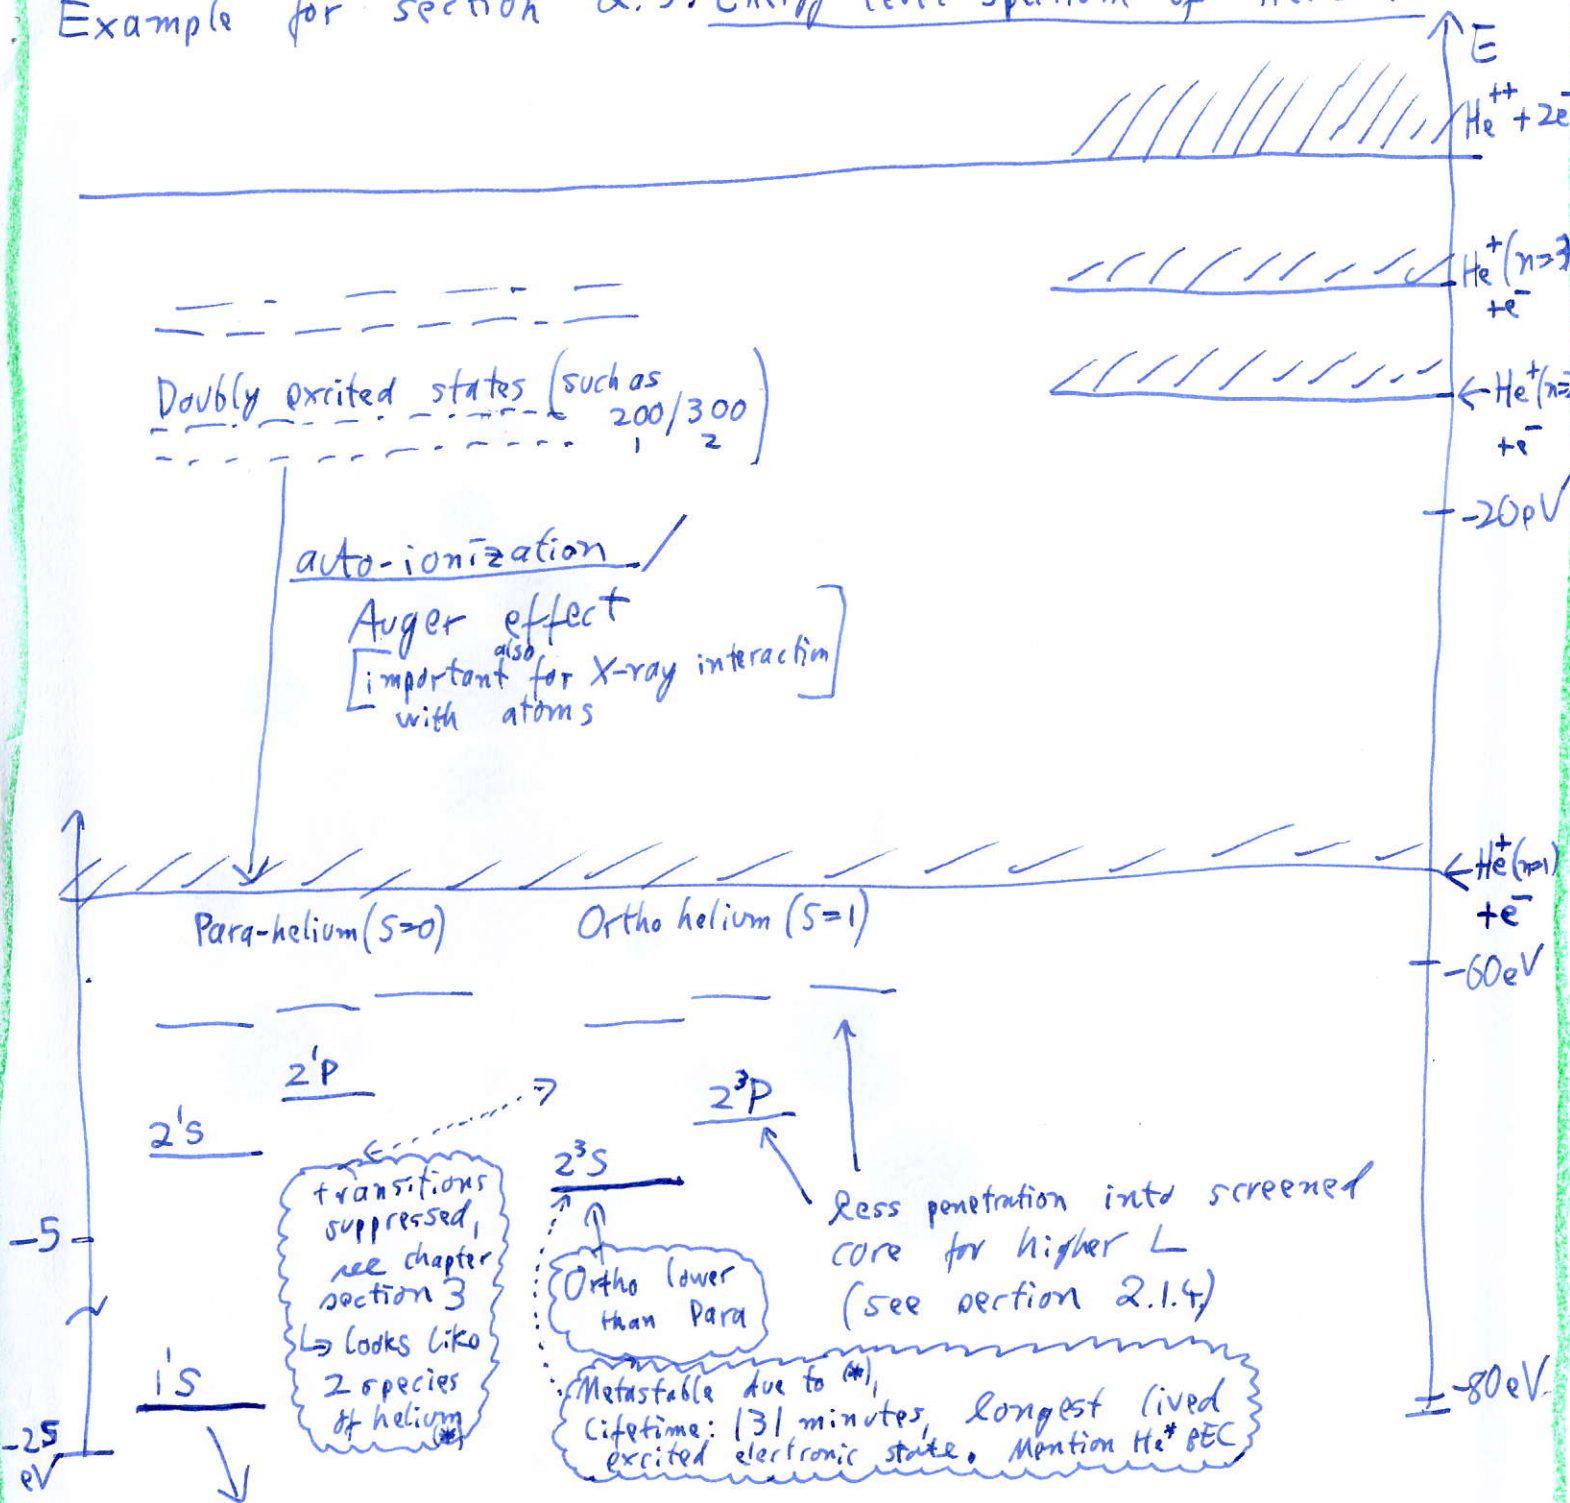 Example for section 2.3: Energy level spectrum of
E
He++ + 2e-
He+(n=3)
+e-
Doubly excited states (such as
200/300)
1 2
←He+(n=2
+e-
-20eV
auto-ionization /
Auger effect
[important also for X-ray interaction
with atoms]
←He+(n=1)
+e-
Para-helium(S=0) Ortho helium (S=1)
-60eV
2¹P
2³P
2¹S
2³S
transitions
suppressed,
see chapter
section 3
↳ looks like
2 species
of helium
(*)
less penetration into screened
core for higher L
(see section 2.1.4.)
-5
Ortho lower
than Para
1¹S
Metastable due to (*),
Lifetime: 131 minutes, longest lived
excited electronic state. Mention He* BEC
-80eV
-25
eV